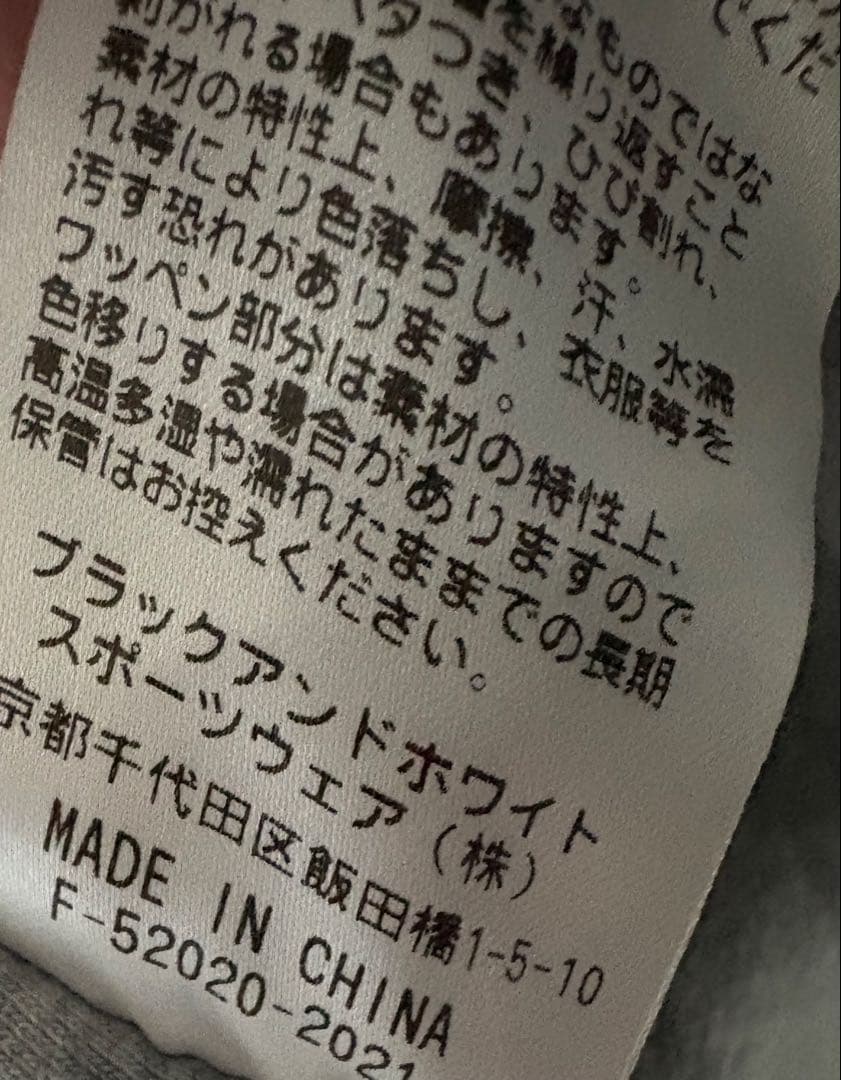 でくだ
なものではな
を繰り返すこと
タつき、ひび割れ、
剥がれる場合もあります。
素材の特性上、摩擦、汗、水濡
れ等により色落ちし、衣服等を
汚す恐れがあります。
ワッペン部分は素材の特性上、
色移りする場合がありますので
高温多湿や濡れたままでの長期
保管はお控えください。
ブラックアンドホワイト
スポーツウェア(株)
京都千代田区飯田橋1-5-10
MADE IN CHINA
F-52020-2021